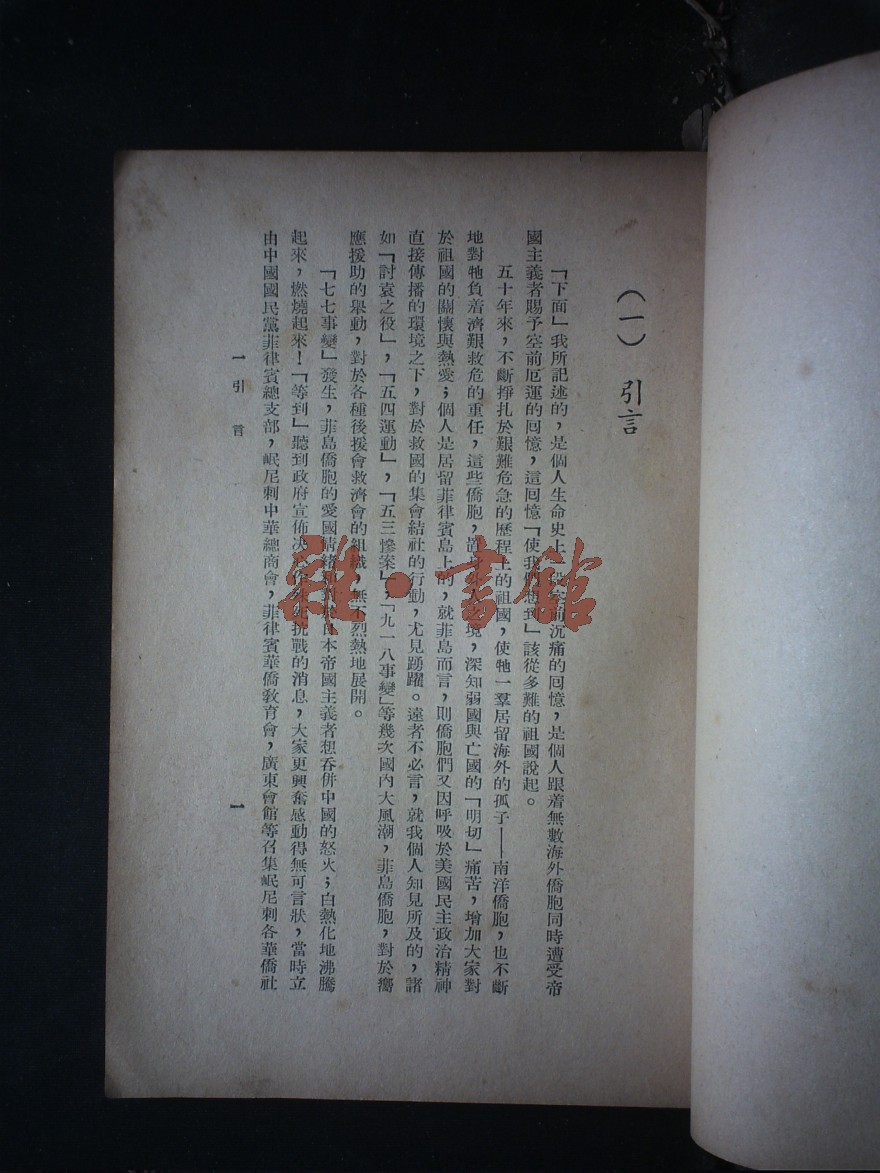 （一） 引言
「下面」我所記述的，是個人生命史上一段空前沉痛的囘憶，是個人跟着無數海外僑胞同時遭受帝
國主義者賜予空前厄運的囘憶，這囘憶「使我們想到」該從多難的祖國說起。
五十年來，不斷掙扎於艱難危急的歷程上的祖國，使牠一羣居留海外的孤子——南洋僑胞，也不斷
地對牠負着濟艱救危的重任，這些僑胞，置身 境，深知弱國與亡國的「明切」痛苦，增加大家對
於祖國的關懷與熱愛；個人是居留菲律賓島上的，就菲島而言，則僑胞們又因呼吸於美國民主政治精神
直接傳播的環境之下，對於救國的集會結社的行動，尤見踴躍。遠者不必言，就我個人知見所及的，諸
如「討袁之役」，「五四運動」，「五三慘案」，「九一八事變」等幾次國內大風潮，菲島僑胞，對於嚮
應援助的舉動，對於各種後援會救濟會的組織，無不烈熱地展開。
「七七事變」發生，菲島僑胞的愛國情緒 日本帝國主義者想吞併中國的怒火；白熱化地沸騰
起來，燃燒起來！「等到」聽到政府宣佈決 抗戰的消息，大家更興奮感動得無可言狀，當時立
由中國國民黨菲律賓總支部，岷尼剌中華總商會，菲律賓華僑敎育會，廣東會館等召集岷尼剌各華僑社
一 引 言
一
雜·書館